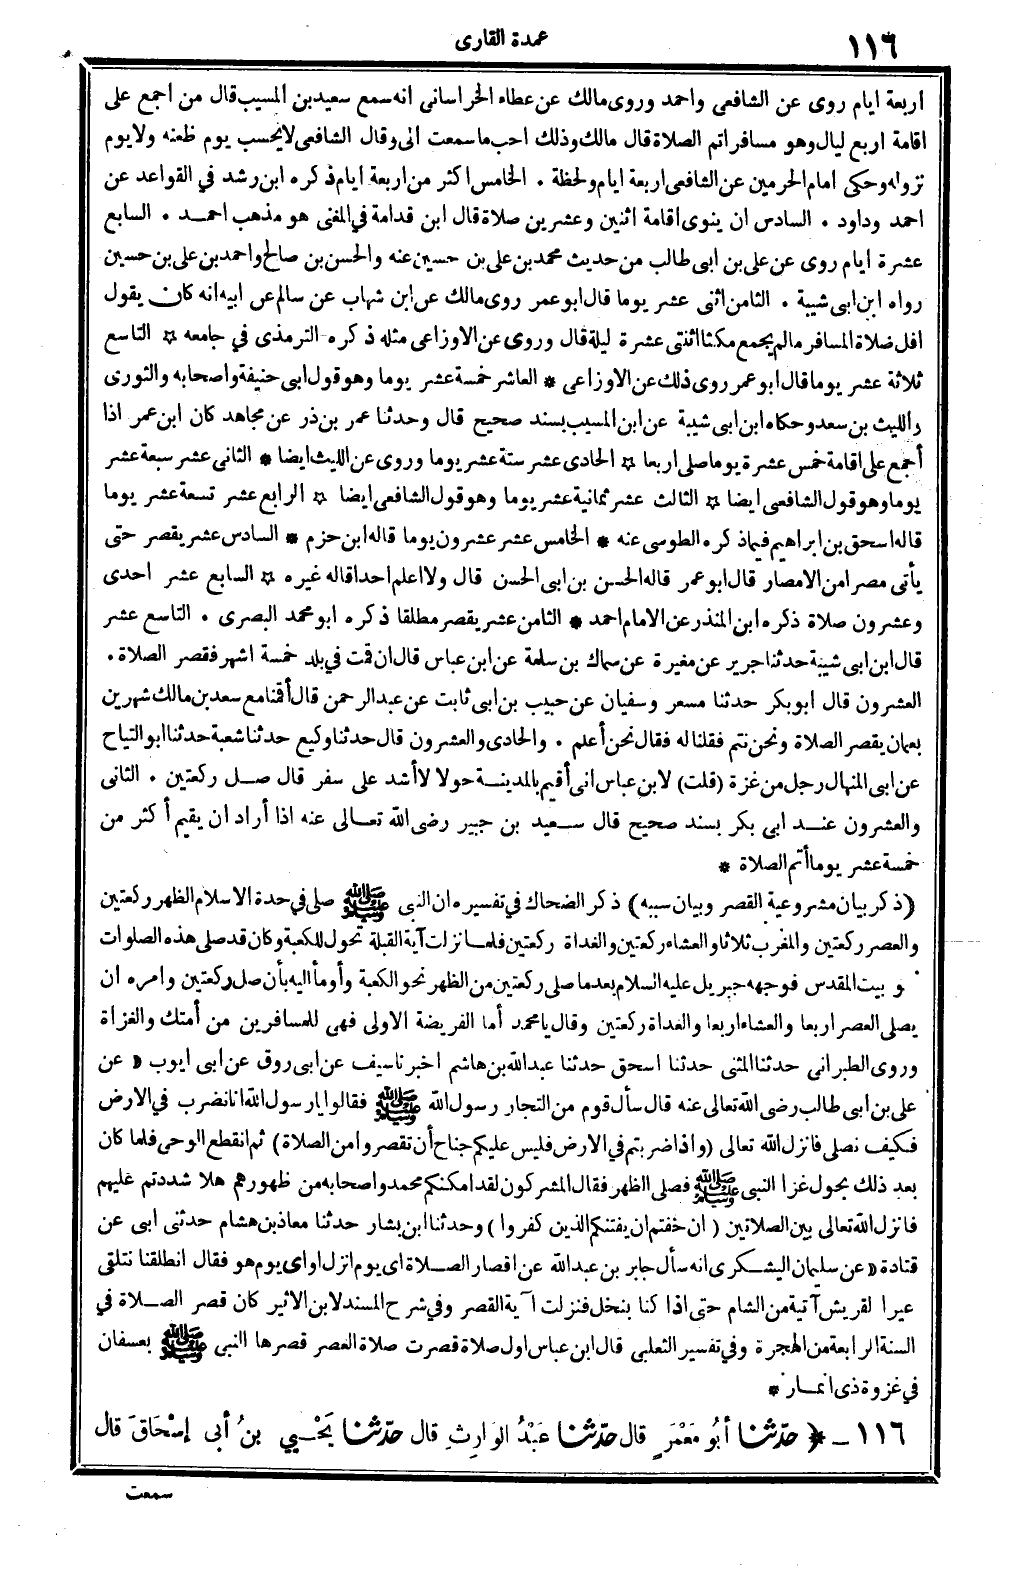 ١١٦
عمدة القارى
اربعة ايام روى عن الشافعى واحمد وروى مالك عن عطاء الخراسانى انه سمع سعيد بن المسيب قال من اجمع على
اقامة اربع ليال وهو مسافر اتم الصلاة قال مالك وذلك احب ما سمعت الى وقال الشافعى لا يحسب يوم ظعنه ولا يوم
نزوله وحكى امام الحرمين عن الشافعى اربعة ايام ولحظة . الخامس اكثر من اربعة ايام ذكره ابن رشد في القواعد عن
احمد وداود . السادس ان ينوى اقامة اثنين وعشرين صلاة قال ابن قدامة في المغنى هو مذهب احمد . السابع
عشرة ايام روى عن على بن ابى طالب من حديث محمد بن على بن حسين عنه والحسن بن صالح واحمد بن على بن حسين
رواه ابن ابى شيبة . الثامن اثنى عشر يوما قال ابو عمر روى مالك عن ابن شهاب عن سالم عن ابيه انه كان يقول
اقل صلاة المسافر مالم يجمع مكثا اثنتى عشرة ليلة قال وروى عن الاوزاعى مثله ذكره الترمذى في جامعه ☆ التاسع
ثلاثة عشر يوما قال ابو عمر روى ذلك عن الاوزاعى * العاشر خمسة عشر يوما وهو قول ابى حنيفة واصحابه والثورى
والليث بن سعد وحكاه ابن ابى شيبة عن ابن المسيب بسند صحيح قال وحدثنا عمر بن ذر عن مجاهد كان ابن عمر اذا
أجمع على اقامة خمس عشرة يوما صلى اربعا ☆ الحادى عشر ستة عشر يوما وروى عن الليث ايضا * الثانى عشر سبعة عشر
يوما وهو قول الشافعى ايضا ☆ الثالث عشر ثمانية عشر يوما وهو قول الشافعى ايضا ☆ الرابع عشر تسعة عشر يوما
قاله اسحق بن ابراهيم فيما ذكره الطوسى عنه * الخامس عشر عشرون يوما قاله ابن حزم * السادس عشر يقصر حتى
يأتى مصرا من الامصار قال ابو عمر قاله الحسن بن ابى الحسن قال ولا اعلم احدا قاله غيره ☆ السابع عشر احدى
وعشرون صلاة ذكره ابن المنذر عن الامام احمد * الثامن عشر يقصر مطلقا ذكره ابو محمد البصرى . التاسع عشر
قال ابن ابى شيبة حدثنا جرير عن مغيرة عن سماك بن سلمة عن ابن عباس قال ان قمت في بلد خمسة اشهر فقصر الصلاة .
العشرون قال ابو بكر حدثنا مسعر وسفيان عن حبيب بن ابى ثابت عن عبد الرحمن قال أقمنا مع سعد بن مالك شهرين
بعمان يقصر الصلاة ونحن نتم فقلنا له فقال نحن أعلم . والحادى والعشرون قال حدثنا وكيع حدثنا شعبة حدثنا ابو التياح
عن ابى المنهال رجل من غزة (قلت) لابن عباس انى أقيم بالمدينة حولا لا أشد على سفر قال صل ركعتين . الثانى
والعشرون عند ابى بكر بسند صحيح قال سعيد بن جبير رضى الله تعالى عنه اذا أراد ان يقيم أكثر من
خمسة عشر يوما أتم الصلاة *
(ذكر بيان مشروعية القصر وبيان سببه) ذكر الضحاك في تفسيره ان النبى ﷺ صلى في حدة الاسلام الظهر ركعتين
والعصر ركعتين والمغرب ثلاثا والعشاء ركعتين والغداة ركعتين فلما نزلت آية القبلة تحول للكعبة وكان قد صلى هذه الصلوات
و بيت المقدس فوجهه جبريل عليه السلام بعد ما صلى ركعتين من الظهر نحو الكعبة وأومأ اليه بأن صل ركعتين وامره ان
يصلى العصر اربعا والعشاء اربعا والغداة ركعتين وقال يا محمد أما الفريضة الاولى فهى للمسافرين من أمتك والغزاة
وروى الطبرانى حدثنا المثنى حدثنا اسحق حدثنا عبد الله بن هاشم اخبرنا سيف عن ابى روق عن ابى ايوب « عن
على بن ابى طالب رضى الله تعالى عنه قال سأل قوم من التجار رسول الله ﷺ فقالوا يا رسول الله انا نضرب في الارض
فكيف نصلى فانزل الله تعالى (واذا ضربتم في الارض فليس عليكم جناح أن تقصروا من الصلاة) ثم انقطع الوحى فلما كان
بعد ذلك بحول غزا النبى ﷺ فصلى الظهر فقال المشركون لقد امكنكم محمد واصحابه من ظهورهم هلا شددتم عليهم
فانزل الله تعالى بين الصلاتين (ان خفتم ان يفتنكم الذين كفروا) وحدثنا ابن بشار حدثنا معاذ بن هشام حدثنى ابى عن
قتادة « عن سليمان اليشكرى انه سأل جابر بن عبد الله عن اقصار الصلاة اى يوم انزل او اى يوم هو فقال انطلقنا نتلقى
عيرا لقريش آتية من الشام حتى اذا كنا بنخل فنزلت آية القصر وفي شرح المسند لابن الاثير كان قصر الصلاة في
السنة الرابعة من الهجرة وفي تفسير الثعلبى قال ابن عباس اول صلاة قصرت صلاة العصر قصرها النبى ﷺ بعسفان
في غزوة ذى انمار *
١١٦ - ﴿ حدّثنا أبُو مَعْمَرٍ قال حدّثنا عَبْدُ الوَارِثِ قال حدّثنا يَحْيي بنُ أبى إسْحَاقَ قال
سمعت